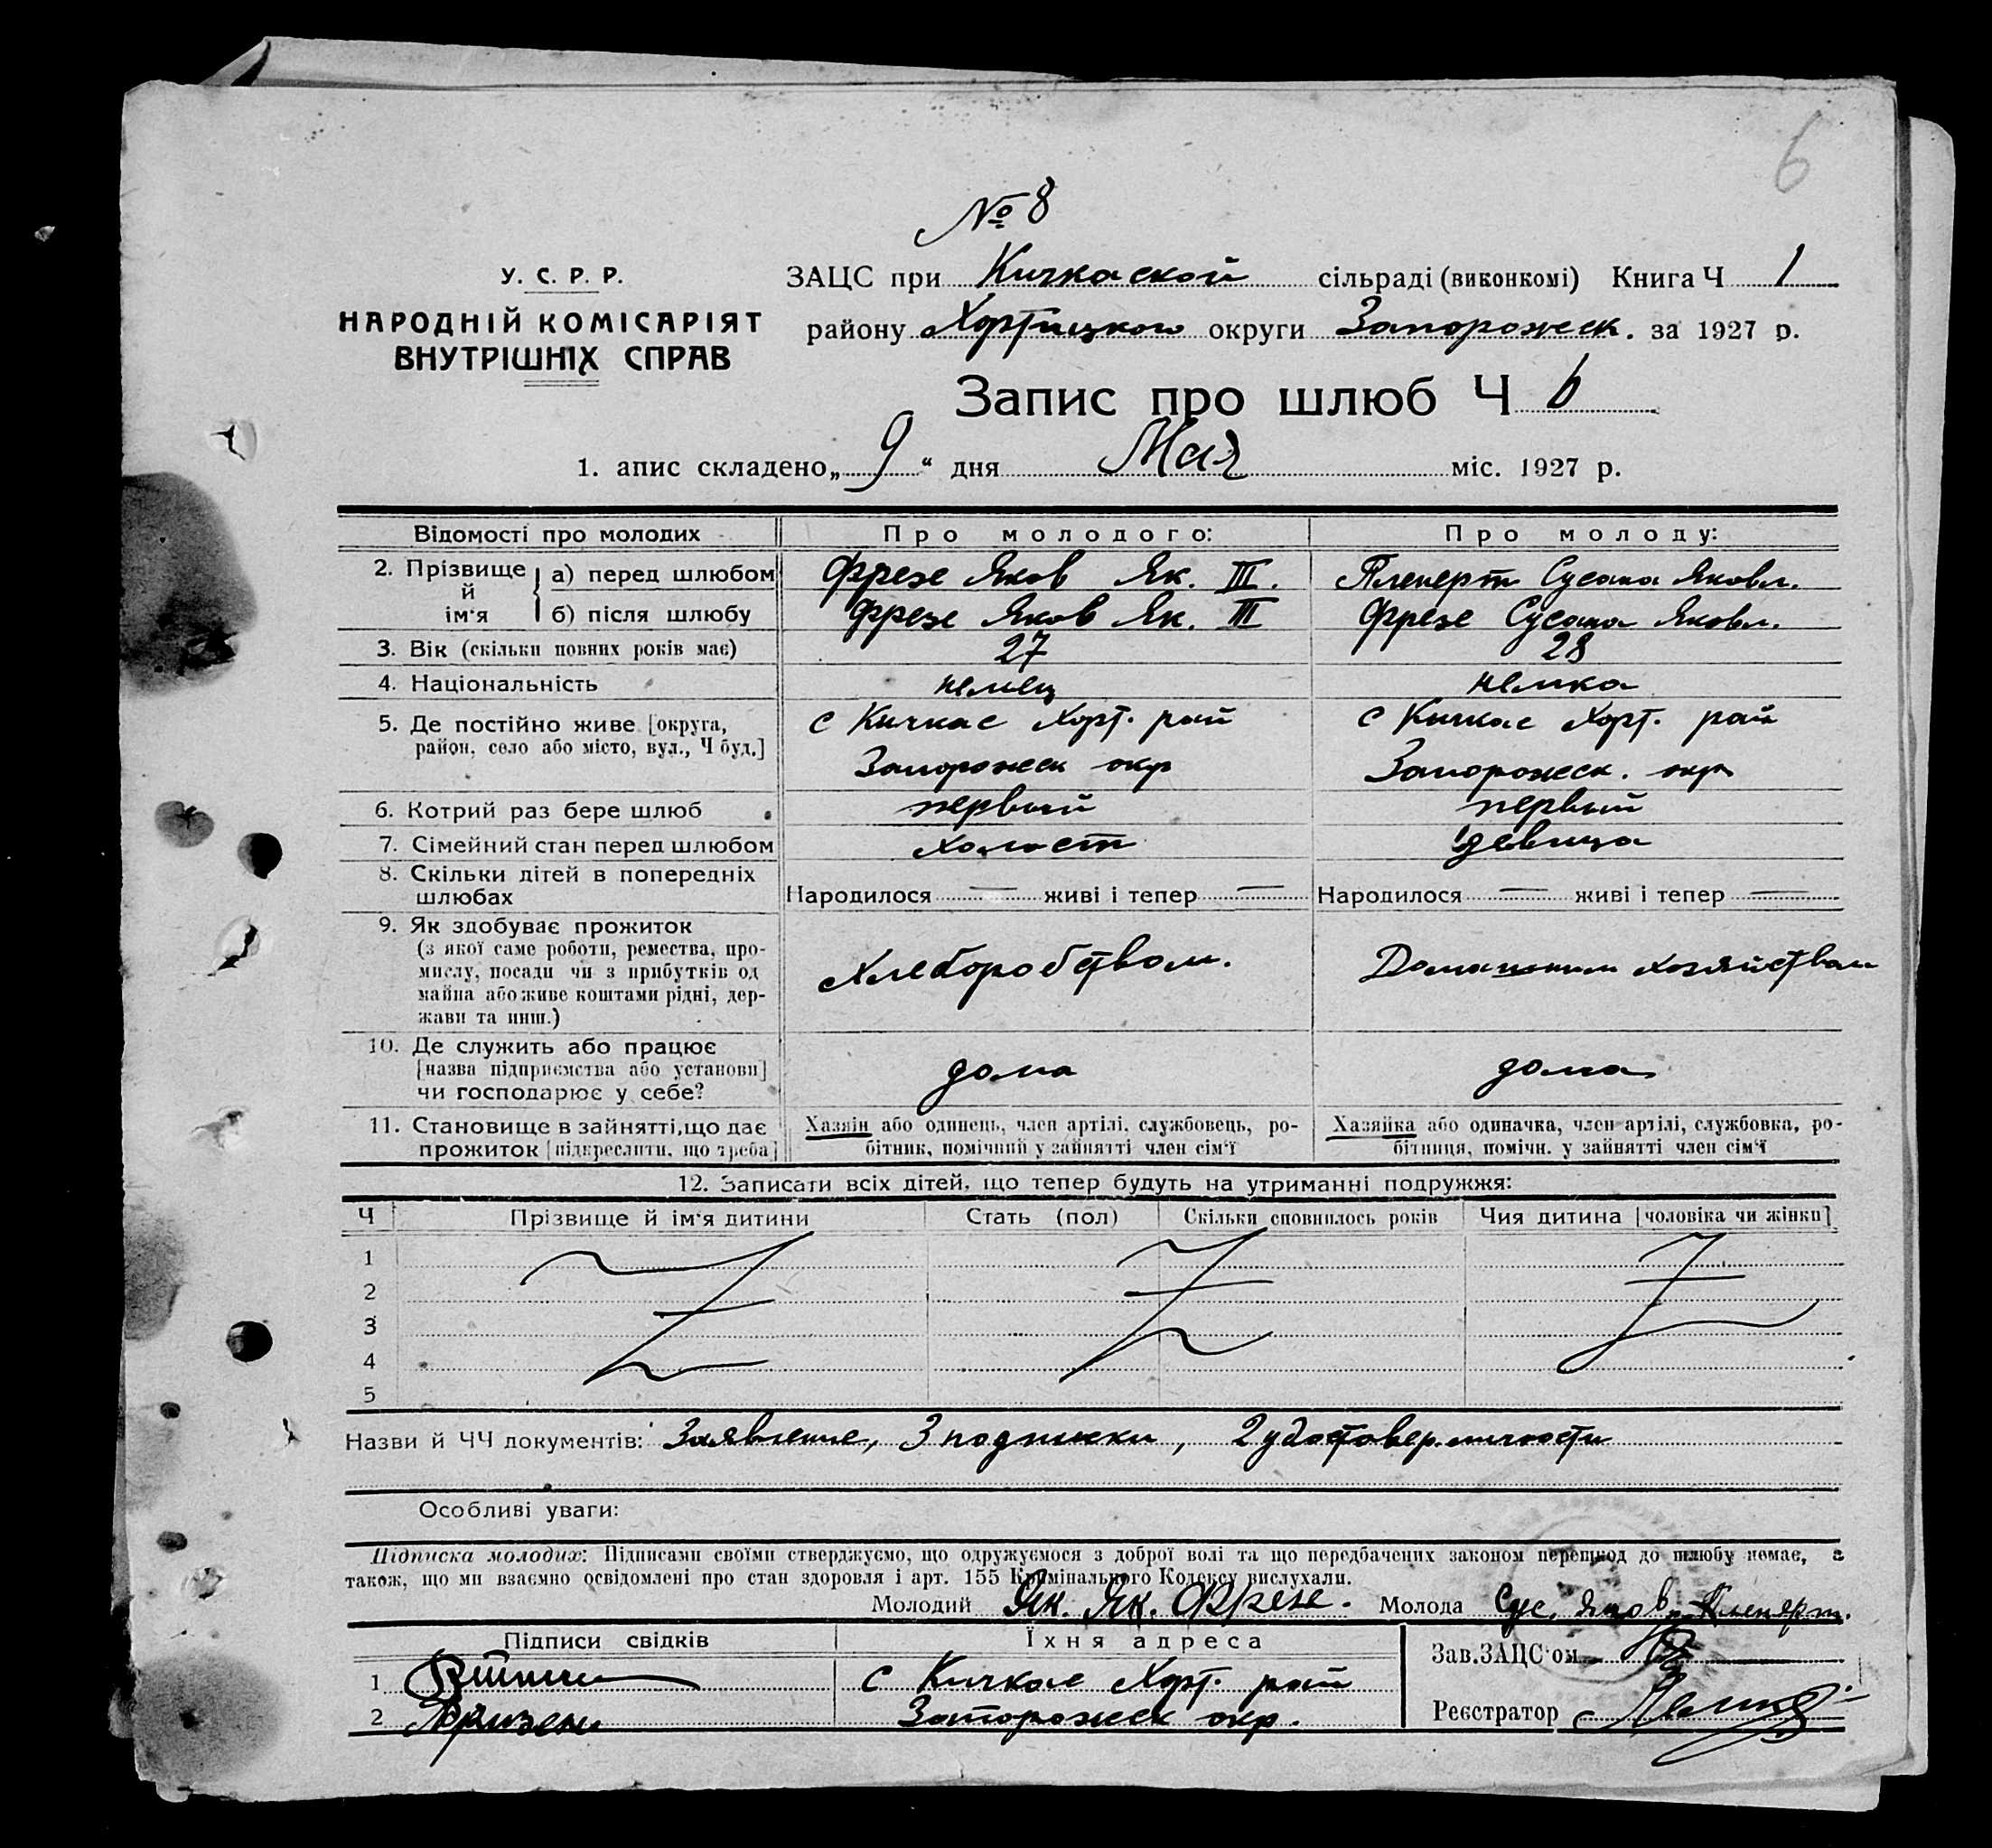 6
№ 8
У. С. Р. Р.
НАРОДНІЙ КОМІСАРІЯТ
ВНУТРІШНІХ СПРАВ
ЗАЦС при Кичкаской сільраді (виконкомі) Книга Ч 1
району Хортицкого округи Запорожеск. за 1927 р.
Запис про шлюб Ч 6
1. апис складено „ 9 “ дня Мая міс. 1927 р.
Відомості про молодих Про молодого: Про молоду:
2. Прізвище й ім‘я а) перед шлюбом Фрезе Яков Як. III. Пленерт Сусана Яковл.
б) після шлюбу Фрезе Яков Як. III Фрезе Сусана Яковл.
3. Вік (скільки повних років має) 27 28
4. Національність немец немка
5. Де постійно живе [округа, с Кичкас Хорт. рай с Кичкас Хорт. рай
район, село або місто, вул., Ч буд.] Запорожеск окр Запорожеск. окр
6. Котрий раз бере шлюб первый первый
7. Сімейний стан перед шлюбом холост девица
8. Скільки дітей в попередніх
шлюбах Народилося — живі і тепер — Народилося — живі і тепер —
9. Як здобуває прожиток
(з якої саме роботи, ремества, про-
мислу, посади чи з прибутків од Хлеборобством. Домашним хозяйством
майна або живе коштами рідні, дер-
жави та инш.)
10. Де служить або працює
[назва підприємства або установи] дома дома
чи господарює у себе?
11. Становище в зайнятті, що дає Хазяїн або одинець, член артілі, службовець, ро- Хазяйка або одиначка, член артілі, службовка, ро-
прожиток [підкреслити, що треба] бітник, помічний у зайнятті член сім‘ї бітниця, помічн. у зайнятті член сім‘ї
12. Записати всіх дітей, що тепер будуть на утриманні подружжя:
Ч Прізвище й ім‘я дитини Стать (пол) Скільки сповнилось років Чия дитина [чоловіка чи жінки]
1
2
3
4
5
Назви й ЧЧ документів: Заявление, 3 подписки, 2 удостовер. личности
Особливі уваги:
Підписка молодих: Підписами своїми стверджуємо, що одружуємося з доброї волі та що передбачених законом перешкод до шлюбу немає, а
також, що ми взаємно освідомлені про стан здоровля і арт. 155 Кримінального Кодексу вислухали.
Молодий Як. Як. Фрезе. Молода Сус. Яков. Пленерт.
Підписи свідків Їхня адреса Зав. ЗАЦС‘ом
1 с Кичкас Хорт. рай
2 Запорожеск окр. Реєстратор